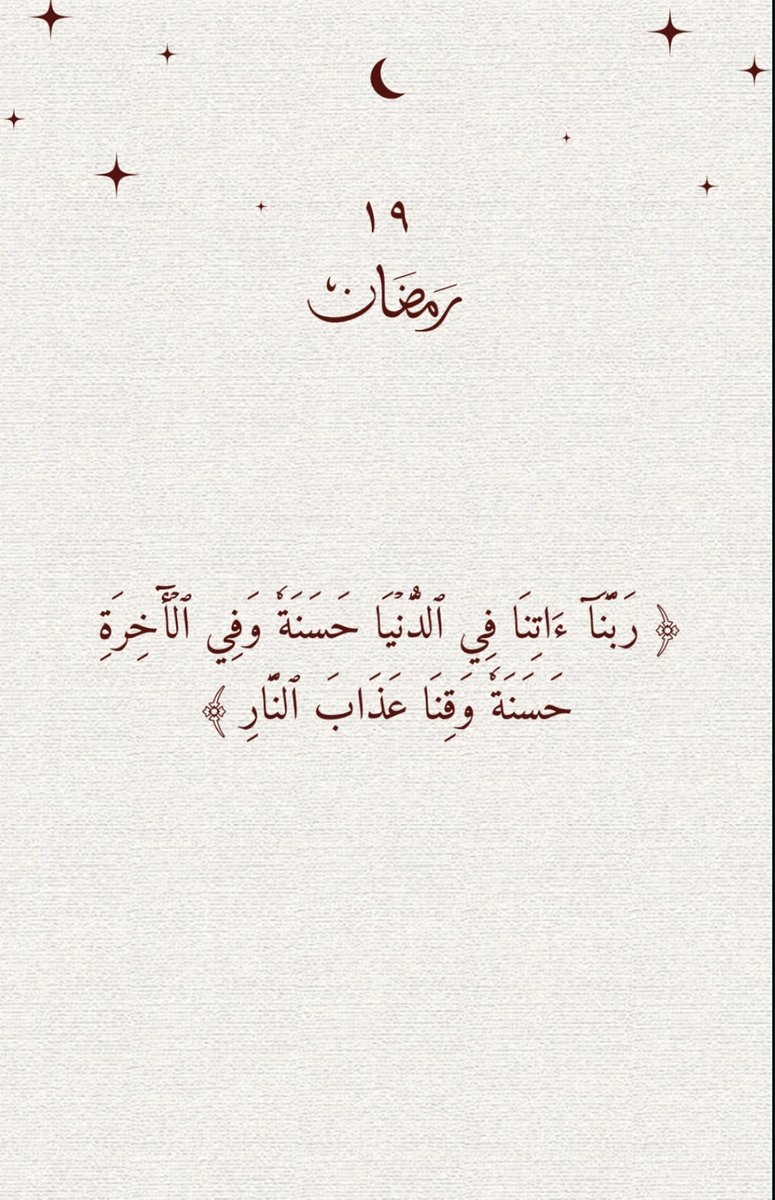 ١٩
رَمَضَان
﴿ رَبَّنَآ ءَاتِنَا فِي ٱلدُّنۡيَا حَسَنَةٗ وَفِي ٱلۡأٓخِرَةِ
حَسَنَةٗ وَقِنَا عَذَابَ ٱلنَّارِ ﴾